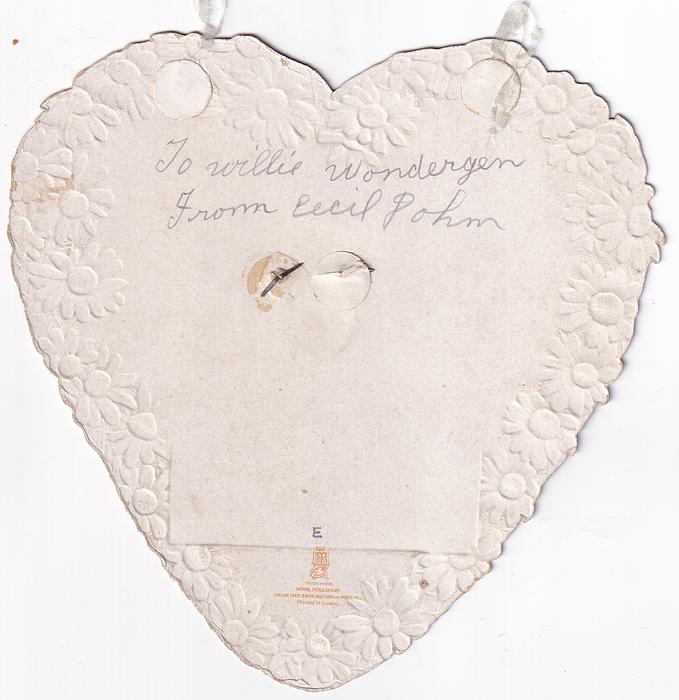 To willie Wondergen
From Cecil Pohm
E
TRADE MARK
RAPHAEL TUCK & SONS LTD
LONDON, PARIS, BERLIN, NEW YORK AND MONTREAL
Printed in Saxony